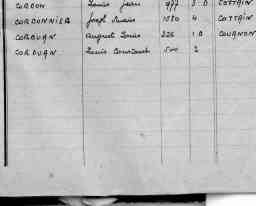 CORDON Louis Jean 977 3 D COTTAIN
CORDONNIER Joseph 1580 4 COTTAIN
CORDUAN August Louis 226 1 D COURNON
CORDUAN Louis 500 2